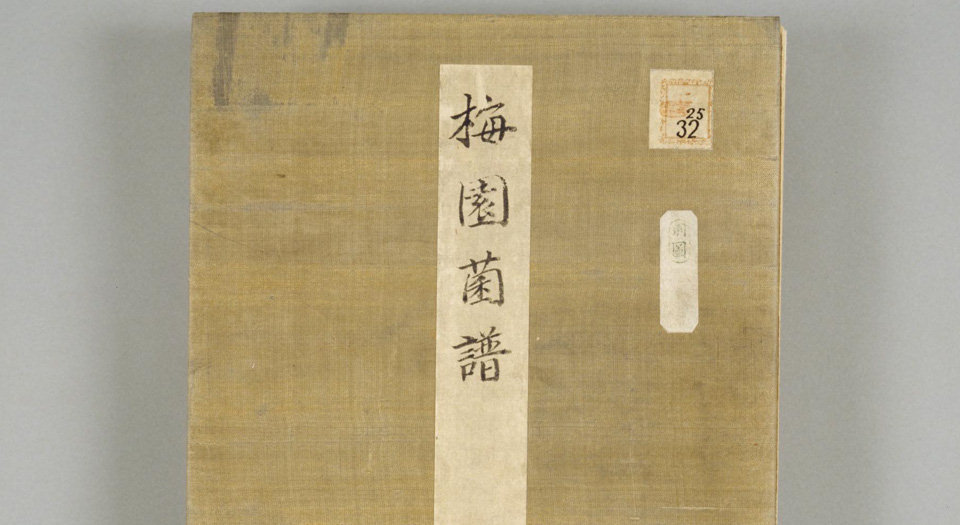 梅園菌譜
25
32